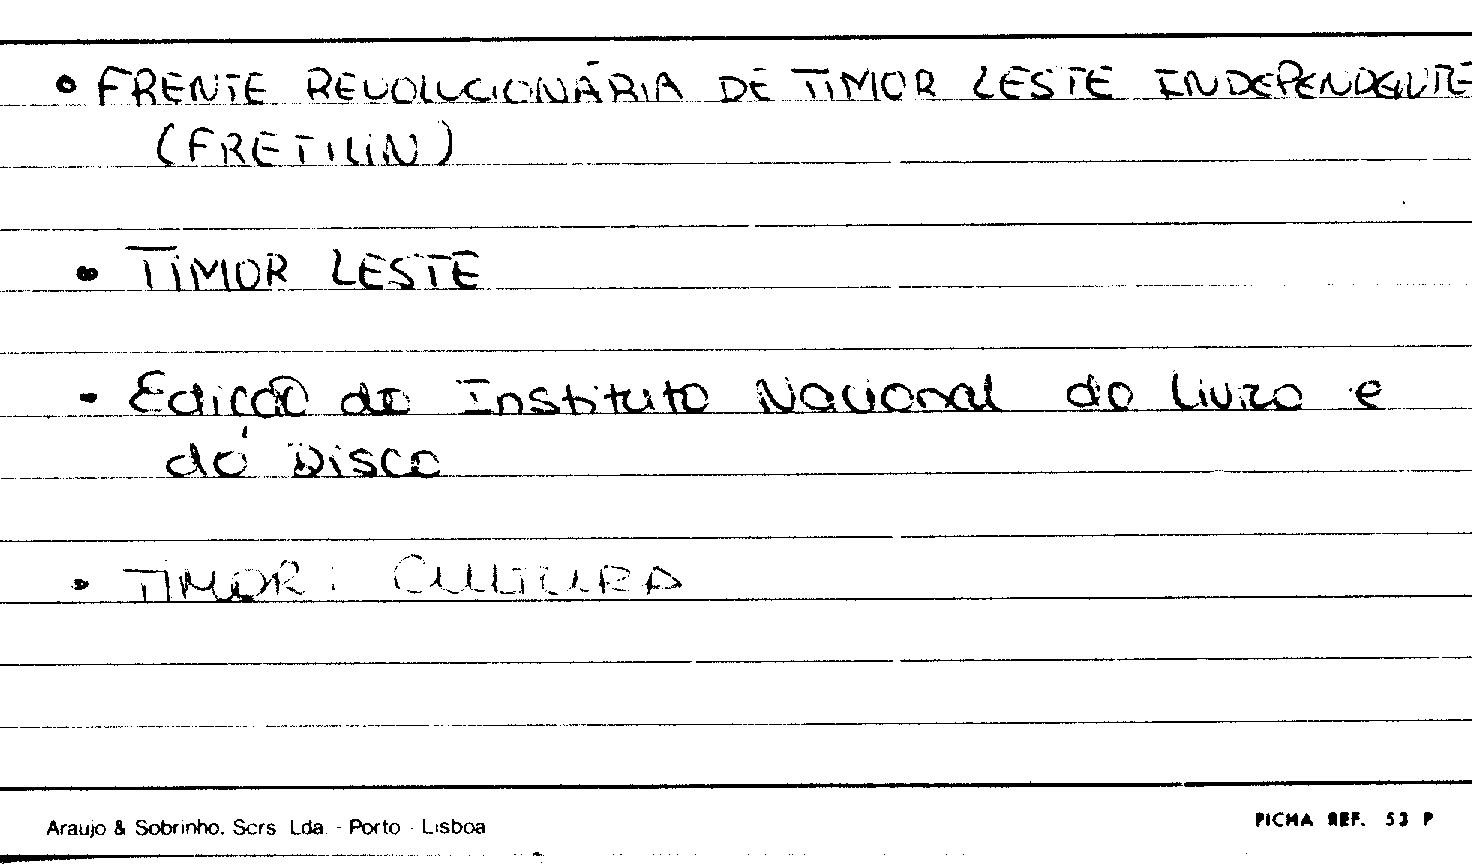 • FRENTE REVOLUCIONÁRIA DE TIMOR LESTE INDEPENDENTE
(FRETILIN)
• TIMOR LESTE
- Edição do Instituto Nacional do Livro e
do Disco
• TIMOR: CULTURA
Araujo & Sobrinho, Scrs Lda. - Porto - Lisboa
FICHA REF. 53 P